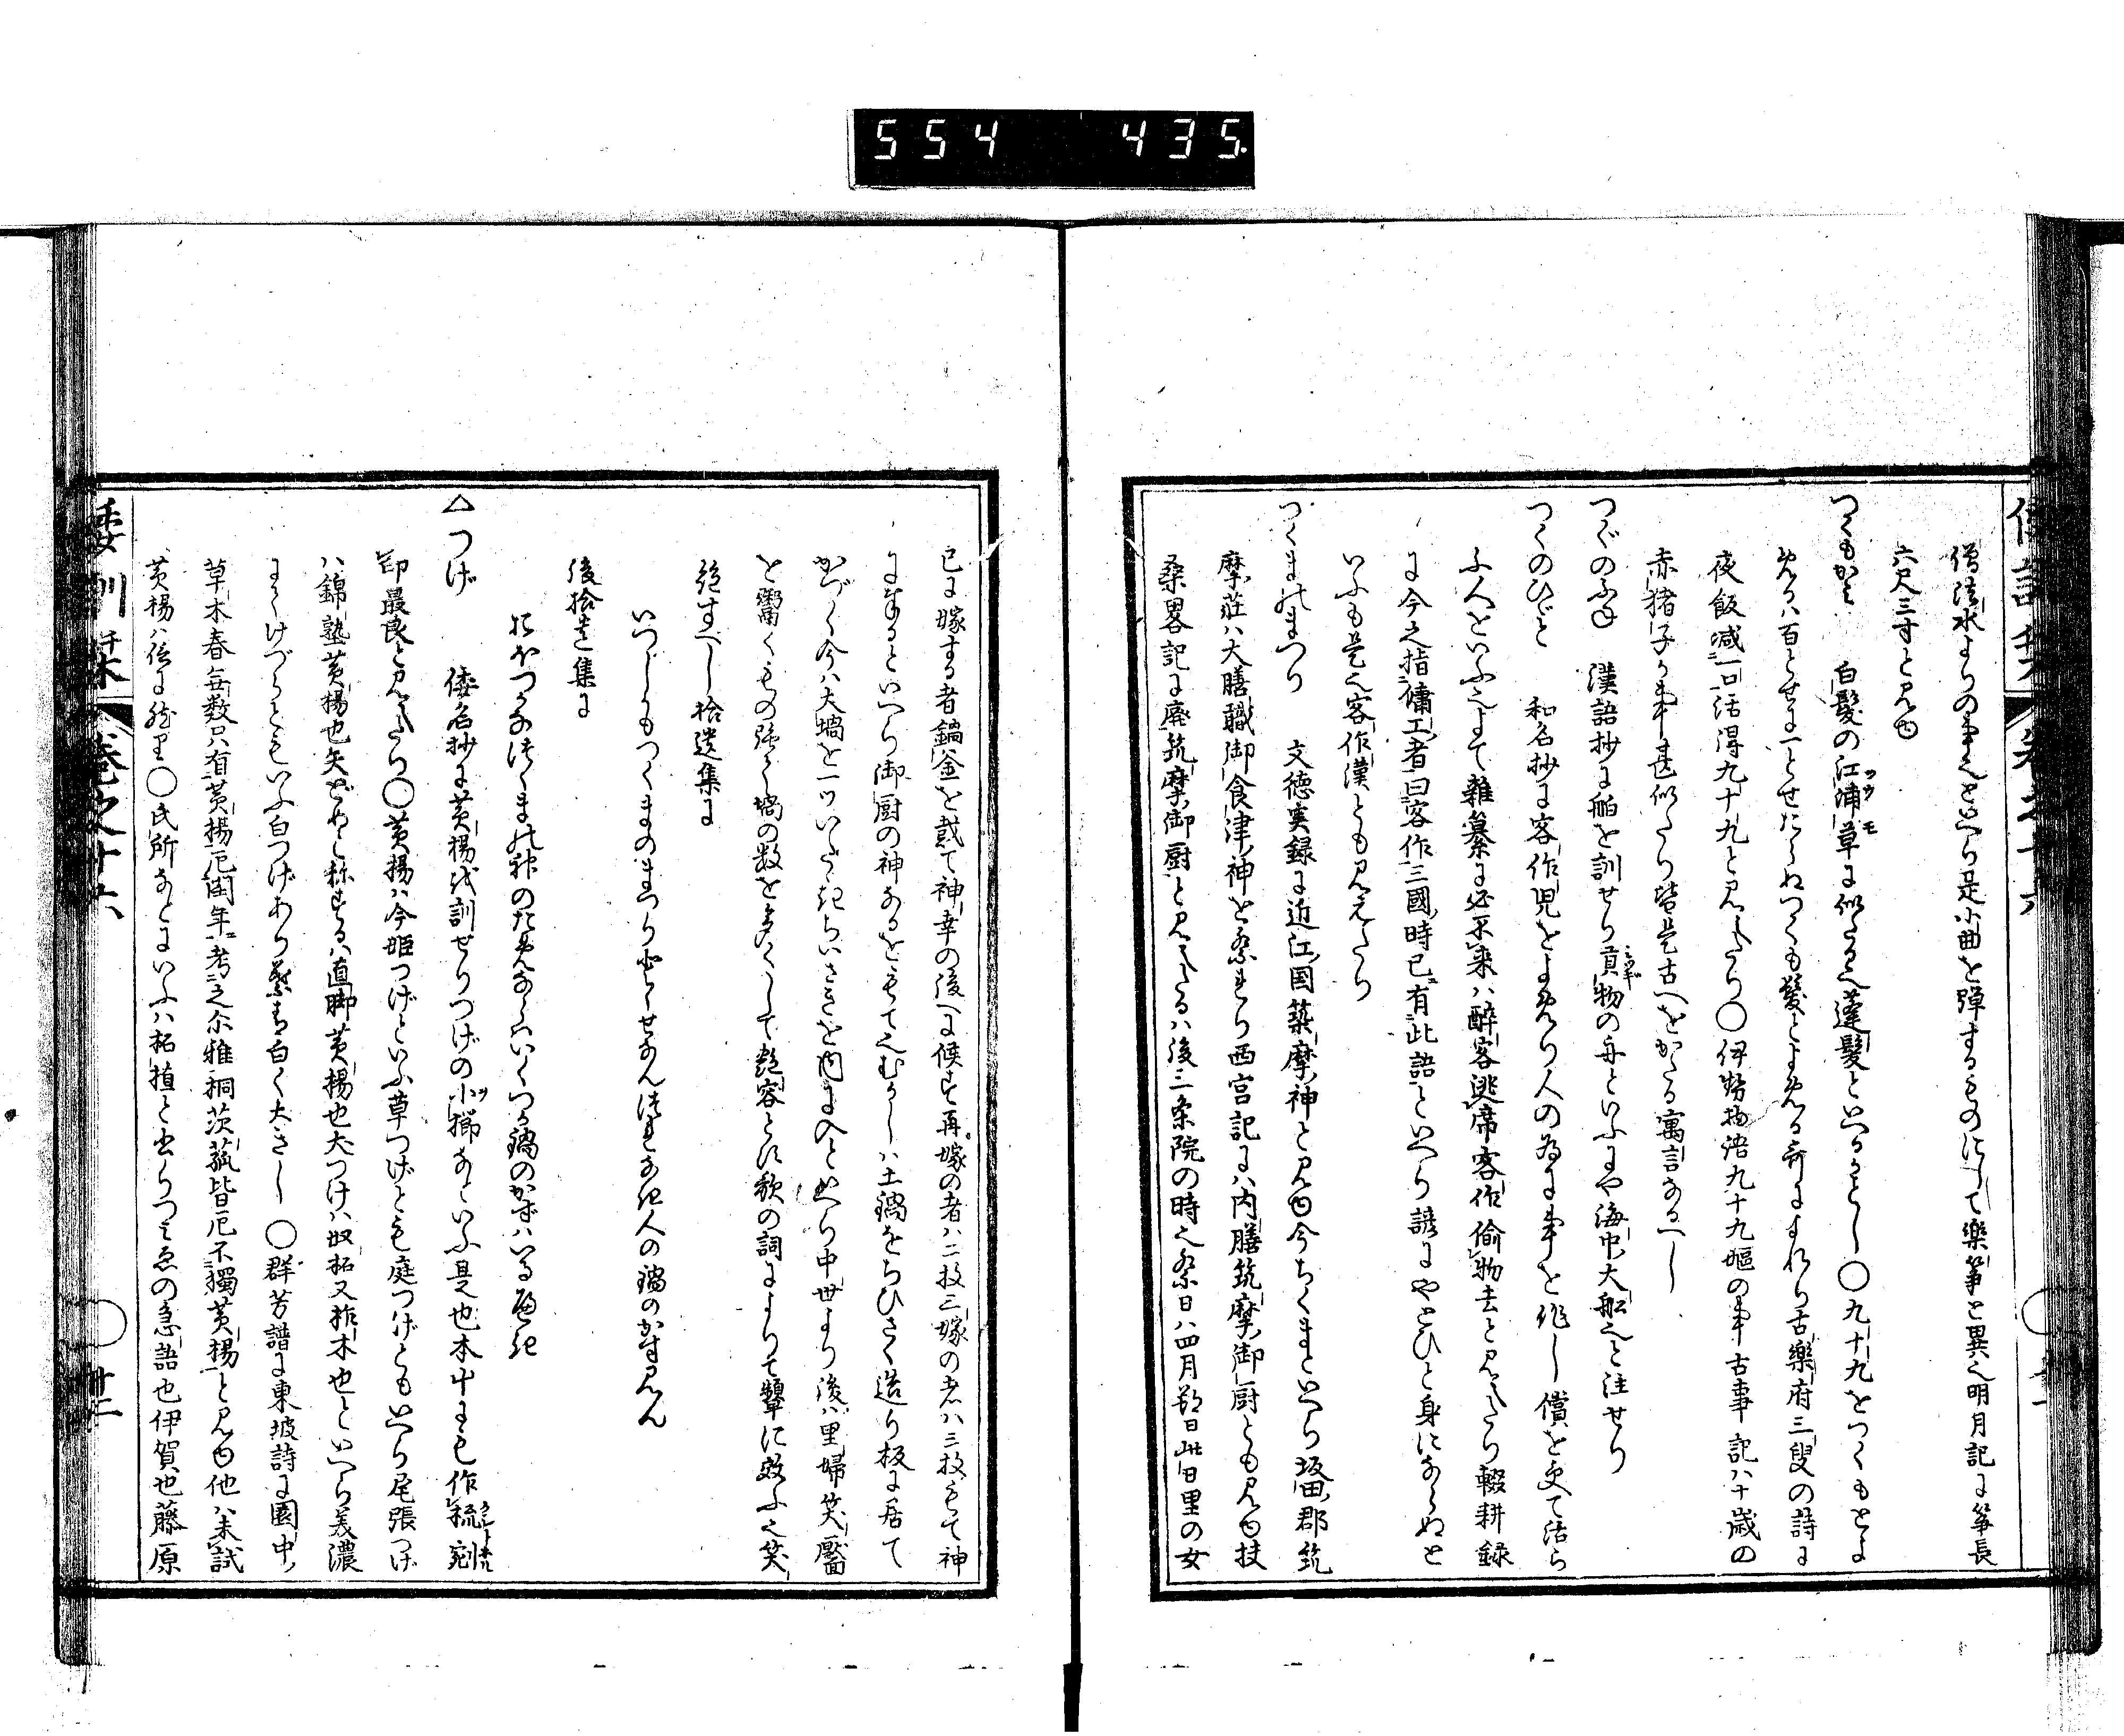 554 435
僧法水よりの事也といへり是小曲を弾するものにして楽箏と異也明月記に箏長
六尺三寸と見ゆ
つくもかみ 白髪の江浦草に似たる也蓬髪といふかことし〇九十九をつくもとよ
めるハ百とせに一とせたらぬつくも髪とよめる哥によれり古楽府三叟の詩に
夜飯減一口活得九十九と見えたり〇伊勢物語九十九嫗の事古事記八十歳の
赤猪子か事甚似たり皆是古へをかたる寓言なるへし
つぐのふね 漢語抄に舶を訓せり貢物の舟といふにや海中大船也と注せり
つくのひと 和名抄に客作児をよめり人の為に事を作し償を受て活ら
ふ人をいふ也よて雑纂に必不来ハ酔客逃席客作偸物去と見えたり輟耕録
に今之指傭工者曰客作三國時已有此語といへり諺にやとひと身にならぬと
いふも是也客作漢とも見えたり
つくまのまつり 文徳実録に近江国築摩神と見ゆ今ちくまといへり坂田郡筑
摩荘ハ大膳職御食津神を祭れり西宮記に八内膳筑摩御厨とも見ゆ扶
桑畧記に廃筑摩御厨と見えたるハ後三条院の時也祭日ハ四月朔日此日里の女
已に嫁する者鍋釜を戴て神幸の後へに候す再嫁の者ハ二枚三嫁の者ハ三枚もて神
に奉るといへり御厨の神なるをもて也むかしハ土鍋をちひさく造り板に居て
かづく今ハ大堝を一ツいたゝきちいさきを内に入といへり中世より後ハ里婦笑靨
を鬻くもの強く堝の数を多くして艶容とす歌の詞によりて顰に效ふ也笑
絶すべし拾遺集に
いつしかもつくまのまつり早せなんつれなき人の鍋のかす見ん
後拾遺集に
おほつかなつくまの神のためならハいくつか鍋のかずハいるへき
△つげ 倭名抄に黄楊を訓せりつげの小櫛なといふ是也本艸にも作梳剜
印最良と見えたり〇黄楊ハ今姫つげといふ草つげとも庭つげともいへり尾張つげ
ハ錦熟黄楊也矢ばねと称するハ直脚黄楊也犬つけハ奴柘又柞木也といへり美濃
にくけづらともいふ白つげあり葉青白く大きし〇群芳譜に東坡詩に園中
草木春無数只有黄楊厄閏年考之尓雅桐茨菰皆厄不獨黄楊と見ゆ他ハ未試
黄楊ハ信に然里〇氏所なとにいふハ柘植と書りつみゑの急語也伊賀也藤原
倭訓栞 巻之十六